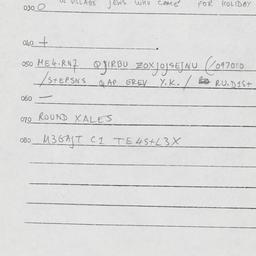 030 O OF VILLAGE JEWS WHO CAME FOR HOLIDAY
040 +
050 ME4.RN7 QJIRBU ZOXJOJSEJNU (097010
/S+EPSNS QAP EREV Y.K. / RU.DIS+
060 —
070 ROUND XALES
080 M3GAJT CI TE4S+L3X